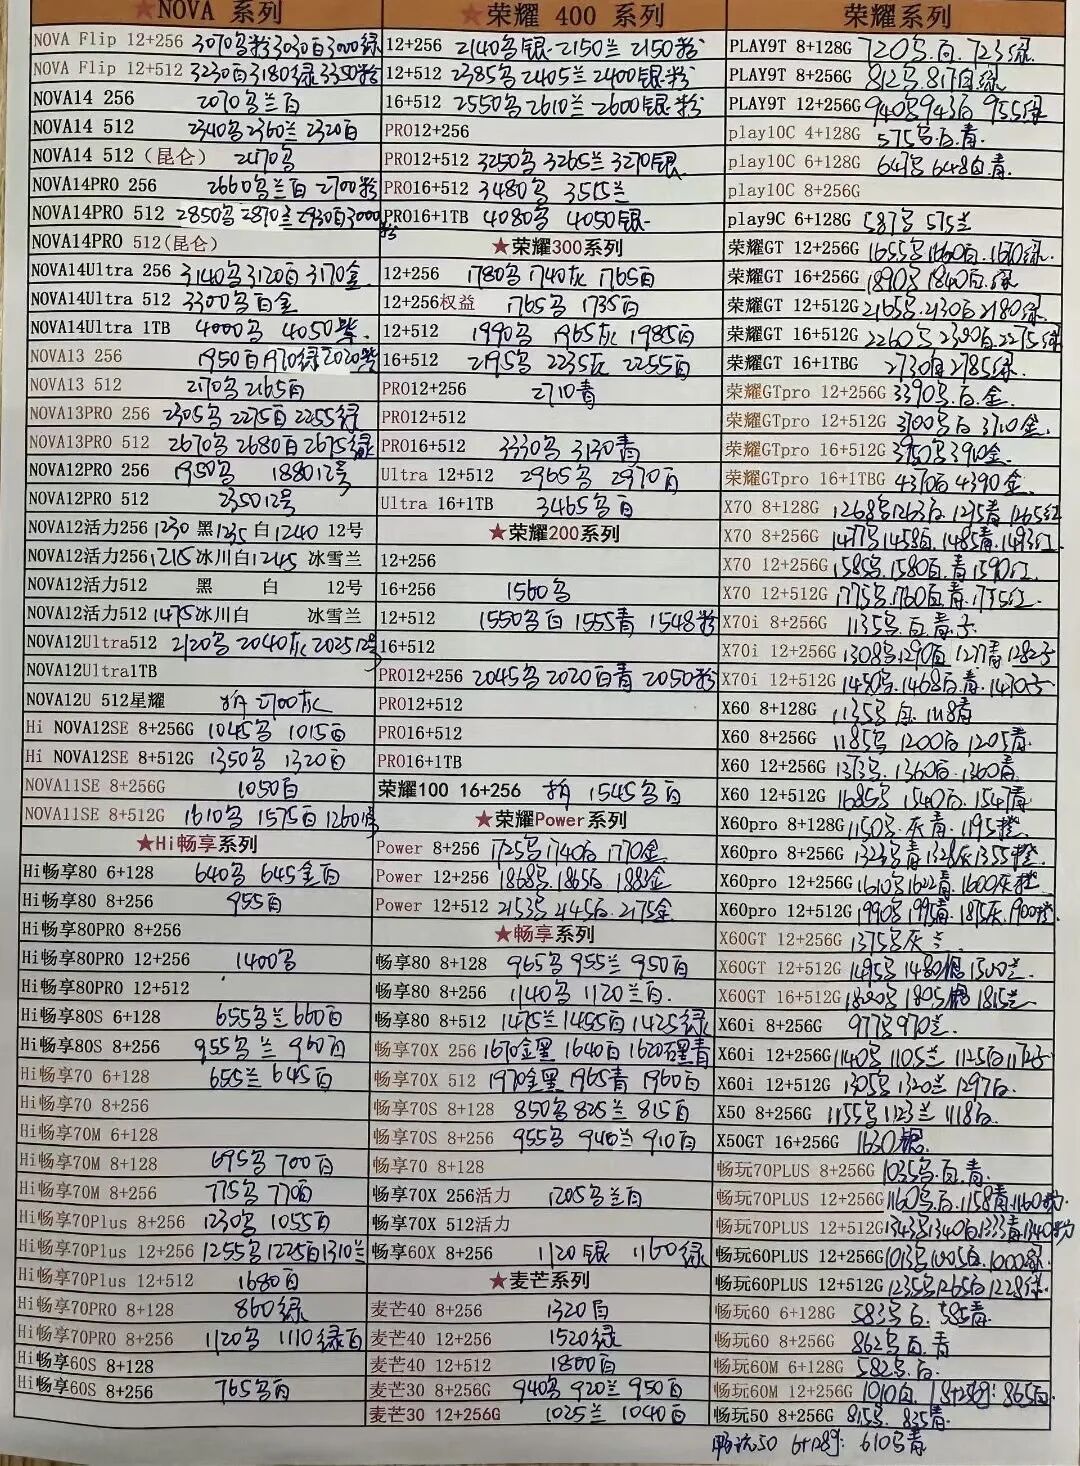 ★NOVA 系列
NOVA Flip 12+256 3070乌粉3030白3000绿
NOVA Flip 12+512 3230白3180绿3350粉
NOVA14 256 2070乌兰白
NOVA14 512 2340乌2360兰2320白
NOVA14 512（昆仑） 2470乌
NOVA14PRO 256 2660乌兰白 2700粉
NOVA14PRO 512 2850乌2870兰2930白3000粉
NOVA14PRO 512(昆仑)
NOVA14Ultra 256 3140乌3120白3170金
NOVA14Ultra 512 3300乌白金
NOVA14Ultra 1TB 4000乌 4050紫
NOVA13 256 1950白1970绿2020紫
NOVA13 512 2170乌2165白
NOVA13PRO 256 2305乌2275白2255绿
NOVA13PRO 512 2670乌2680白2675绿
NOVA12PRO 256 1950乌 188012号
NOVA12PRO 512 235012号
NOVA12活力256 1230 黑1235 白1240 12号
NOVA12活力256 1215冰川白1245 冰雪兰
NOVA12活力512 黑 白 12号
NOVA12活力512 1475冰川白 冰雪兰
NOVA12Ultra512 2120乌2040灰202512号
NOVA12Ultra1TB
NOVA12U 512星耀 2700灰
Hi NOVA12SE 8+256G 1045乌 1015白
Hi NOVA12SE 8+512G 1350乌 1320白
NOVA11SE 8+256G 1050白
NOVA11SE 8+512G 1610乌 1575白1260
★Hi畅享系列
Hi畅享80 6+128 640乌 645金白
Hi畅享80 8+256 955白
Hi畅享80PRO 8+256
Hi畅享80PRO 12+256 1400乌
Hi畅享80PRO 12+512
Hi畅享80S 6+128 655乌兰660白
Hi畅享80S 8+256 955乌兰 960白
Hi畅享70 6+128 655兰645白
Hi畅享70 8+256
Hi畅享70M 6+128
Hi畅享70M 8+128 695乌700白
Hi畅享70M 8+256 775乌770白
Hi畅享70Plus 8+256 1230乌1055白
Hi畅享70Plus 12+256 1255乌1225白1310兰
Hi畅享70Plus 12+512 1680白
Hi畅享70PRO 8+128 860绿
Hi畅享70PRO 8+256 1120乌 1110绿白
Hi畅享60S 8+128
Hi畅享60S 8+256 765乌白
★荣耀 400 系列
12+256 2140乌银 2150兰 2150粉
12+512 2385乌2405兰2400银粉
16+512 2550乌2610兰2600银粉
PRO12+256
PRO12+512 3250乌3265兰3270银
PRO16+512 3480乌 3515兰
PRO16+1TB 4080乌 4050银
★荣耀300系列
12+256 1780乌1740灰 1765白
12+256权益 1765乌 1735白
12+512 1990乌 1965灰 1985白
16+512 2195乌2235灰 2255白
PRO12+256 2710青
PRO12+512
PRO16+512 3330乌 3130青
Ultra 12+512 2965乌 2970白
Ultra 16+1TB 3465乌白
★荣耀200系列
12+256
16+256 1560乌
12+512 1550乌白 1555青 1548粉
16+512
PRO12+256 2045乌2020白青 2050粉
PRO12+512
PRO16+512
PRO16+1TB
荣耀100 16+256 1545乌白
★荣耀Power系列
Power 8+256 1725乌1740白 1770金
Power 12+256 1868乌.1865白 188金
Power 12+512 2153乌2145白.2175金
★畅享系列
畅享80 8+128 965乌 955兰 950白
畅享80 8+256 1140乌 1120兰白.
畅享80 8+512 1475兰1455白1425绿
畅享70X 256 1670金黑 1640白 1620黑青
畅享70X 512 1970金黑1965青 1960白
畅享70S 8+128 850乌825兰 815白
畅享70S 8+256 955乌 940兰910白
畅享70 8+128
畅享70X 256活力 1205乌兰白
畅享70X 512活力
畅享60X 8+256 1120银 1160绿
★麦芒系列
麦芒40 8+256 1320白
麦芒40 12+256 1520绿
麦芒40 12+512 1800白
麦芒30 8+256G 940乌 920兰950白
麦芒30 12+256G 1025兰 1040白
荣耀系列
PLAY9T 8+128G 720乌.白. 723绿.
PLAY9T 8+256G 812乌.817白绿.
PLAY9T 12+256G 940乌943白 955绿
play10C 4+128G 575乌.白.青.
play10C 6+128G 647乌 648白青.
play10C 8+256G
play9C 6+128G 587乌 575兰
荣耀GT 12+256G 1655乌1660白.1670绿.
荣耀GT 16+256G 1890乌1840白.绿
荣耀GT 12+512G 2165乌.2130白2180绿.
荣耀GT 16+512G 2260乌2300白.2275绿
荣耀GT 16+1TBG 2730白2785绿.
荣耀GTpro 12+256G 3390乌.白.金.
荣耀GTpro 12+512G 3700乌白3710金.
荣耀GTpro 16+512G 3950乌3910金.
荣耀GTpro 16+1TBG 4370白4390金.
X70 8+128G 1268乌1263白.1295青1265红
X70 8+256G 1477乌1458白.1485青.1493红.
X70 12+256G 1585乌.1580白.青1590红.
X70 12+512G 1775乌.1760白青.1755红.
X70i 8+256G 1135乌.白青.
X70i 12+256G 1308乌.1290白 1277青
X70i 12+512G 1450乌.1468白.青.
X60 8+128G 1135乌 白. 1118青
X60 8+256G 1185乌 1200白 1205青.
X60 12+256G 1373乌.1360白.1360青.
X60 12+512G 1685乌 1540白. 1547青
X60pro 8+128G 1150乌.灰青.1195橙.
X60pro 8+256G 青1328灰1355橙.
X60pro 12+256G 1610乌1622青.1600灰橙.
X60pro 12+512G 1990乌1995青.1875灰.1900橙.
X60GT 12+256G 1375乌灰兰.
X60GT 12+512G 1495乌1480银1500兰.
X60GT 16+512G 1820乌.1805银1815兰.
X60i 8+256G 977乌970兰.
X60i 12+256G 1140乌 1105兰 1125白
X60i 12+512G 1305乌1320兰 1297白.
X50 8+256G 1155乌1123兰 1118白.
X50GT 16+256G 1630银.
畅玩70PLUS 8+256G 1035乌.白.青.
畅玩70PLUS 12+256G 1160乌.白.1158青.1160粉.
畅玩70PLUS 12+512G 1343乌1340白1333青1340粉
畅玩60PLUS 12+256G 1013乌.1005白.1000绿.
畅玩60PLUS 12+512G 1235乌1265白1228绿.
畅玩60 6+128G 583乌 白. 585青.
畅玩60 8+256G 862乌白.青
畅玩60M 6+128G 582乌.白.
畅玩60M 12+256G 1010白. 8+256g: 865白.
畅玩50 8+256G 815乌. 835青.
畅玩50 6+128g: 610乌青